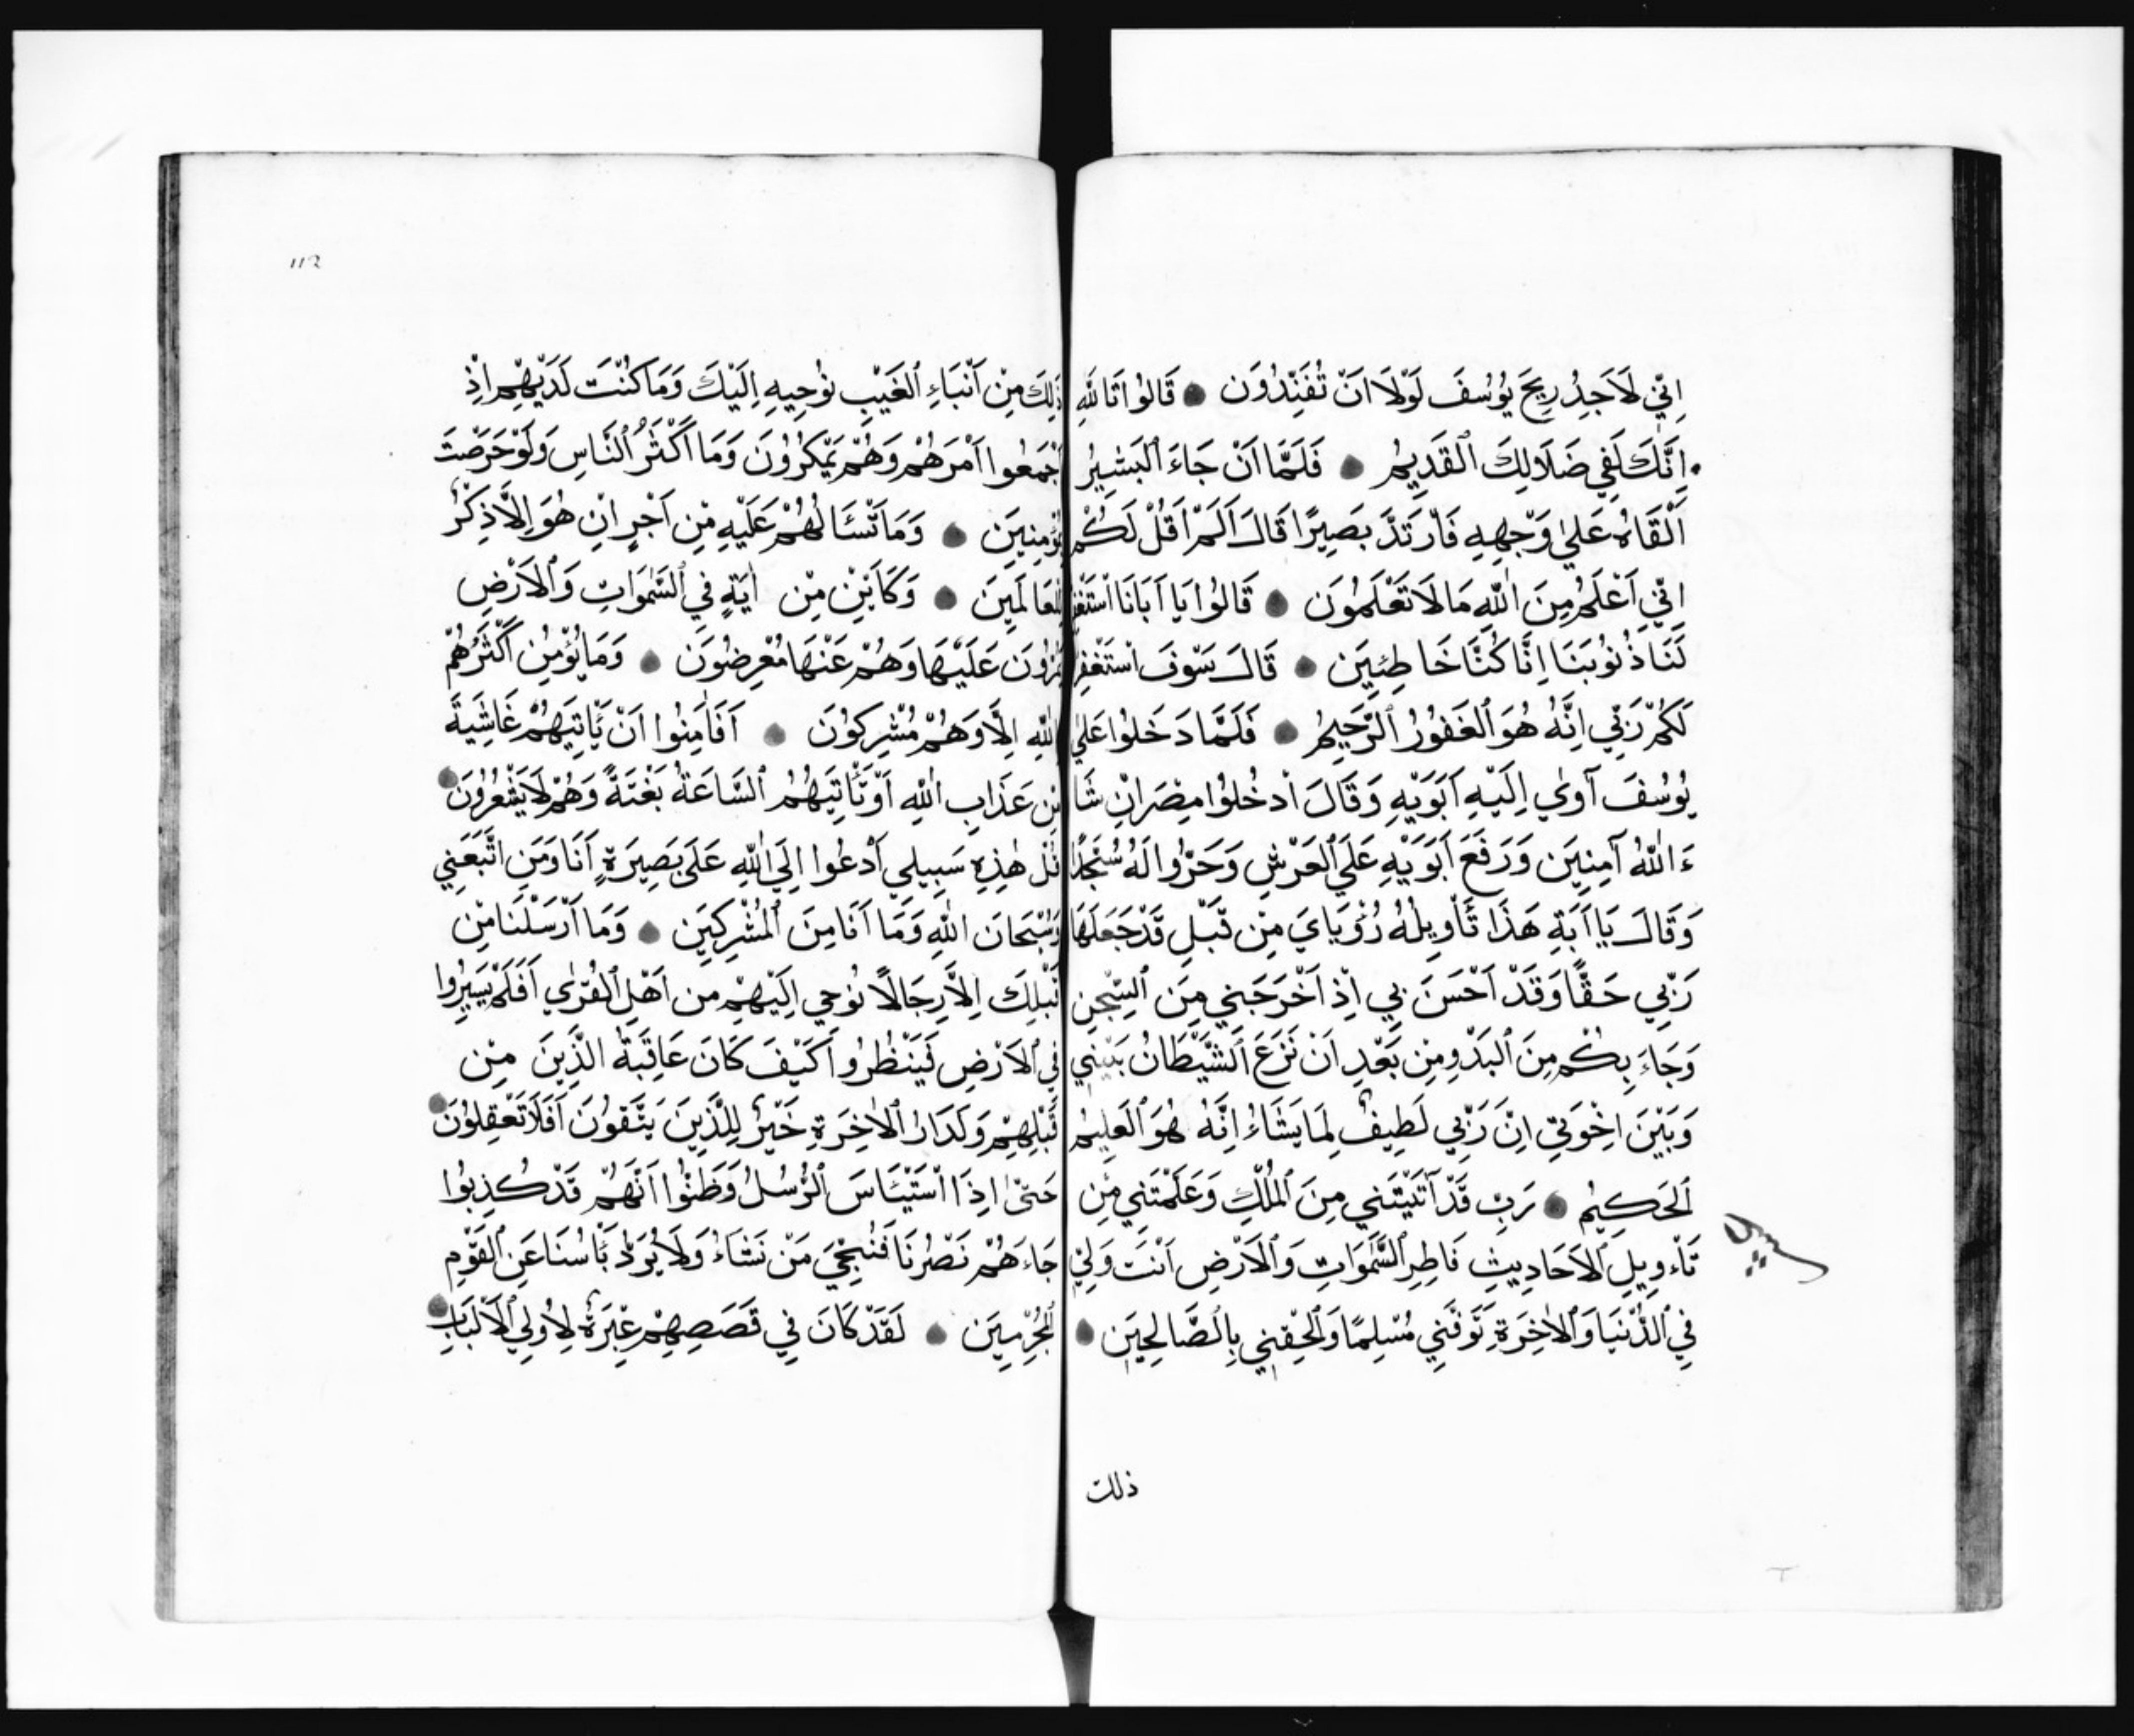 اِنِّي لَاَجِدُ رِيحَ يُوُسُفَ لَوْلَا اَنْ تُفَنِّدُوُنَ ● قَالُوُا تَاللهِ
اِنَّكَ لَفِي ضَلَالِكَ الْقَدِيمِ ● فَلَمَّا اَنْ جَاءَ الْبَشِيرُ
اَلْقَاهُ عَليٰ وَجْهِهِ فَارْتَدَّ بَصِيرًا قَالَ اَلَمْ اَقُلْ لَكُمْ
اِنِّي اَعْلَمُ مِنَ اللهِ مَا لَا تَعْلَمُوُنَ ● قَالُوُا يَا اَبَانَا اسْتَغْفِرْ
لَنَا ذُنُوُبَنَا اِنَّا كُنَّا خَاطِئِينَ ● قَالَ سَوْفَ اَسْتَغْفِرُ
لَكُمْ رَبِّي اِنَّهُ هُوَ الْغَفُوُرُ الرَّحِيمُ ● فَلَمَّا دَخَلُوُا عَليٰ
يُوُسُفَ آوٰي اِلَيْهِ اَبَوَيْهِ وَقَالَ ادْخُلُوُا مِصْرَ اِنْ شَا
ءَ اللهُ آمِنِينَ وَرَفَعَ اَبَوَيْهِ عَلَي الْعَرْشِ وَخَرُّوا لَهُ سُجَّدًا
وَقَالَ يَا اَبَةِ هَذَا تَأْوِيلُهُ رُؤْيَايَ مِنْ قَبْلِ قَدْ جَعَلَهَا
رَبِّي حَقًّا وَقَدْ اَحْسَنَ بِي اِذْ اَخْرَجَنِي مِنَ السِّجْنِ
وَجَاءَ بِكُمْ مِنَ الْبَدْوِ مِنْ بَعْدِ اَنْ نَزَعَ الشَّيْطَانُ بَيْنِي
وَبَيْنَ اِخْوَتِي اِنَّ رَبِّي لَطِيفٌ لِمَا يَشَاءُ اِنَّهُ هُوَ الْعَلِيمُ
اَلْحَكِيمُ ● رَبِّ قَدْ آتَيْتَنِي مِنَ الْمُلْكِ وَعَلَّمْتَنِي مِنْ
تَأْوِيلِ الْاَحَادِيثِ فَاطِرِ السَّمَوَاتِ وَالْاَرْضِ اَنْتَ وَلِيِّ
فِي الدُّنْيَا وَالْاٰخِرَةِ تَوَفَّنِي مُسْلِمًا وَاَلْحِقْنِي بِالصَّالِحِينَ ●
ذلك
112
ذَلِكَ مِنْ اَنْبَاءِ الْغَيْبِ نُوُحِيهِ اِلَيْكَ وَمَا كُنْتَ لَدَيْهِمْ اِذْ
اَجْمَعُوا اَمْرَهُمْ وَهُمْ يَمْكُرُوُنَ وَمَا اَكْثَرُ النَّاسِ وَلَوْ حَرَصْتَ
بِمُؤْمِنِينَ ● وَمَا تَسْئَالُهُمْ عَلَيْهِ مِنْ اَجْرٍ اِنْ هُوَ اِلَّا ذِكْرٌ
لِلْعَالَمِينَ ● وَكَاَيِّنْ مِنْ اٰيَةٍ فِي السَّمٰوَاتِ وَالْاَرْضِ
يَمُرُّوُنَ عَلَيْهَا وَهُمْ عَنْهَا مُعْرِضُوُنَ ● وَمَا يُؤْمِنُ اَكْثَرُهُمْ
بِاللهِ اِلَّا وَهُمْ مُشْرِكُوُنَ ● اَفَاَمِنُوا اَنْ يَأْتِيَهُمْ غَاشِيَةٌ
مِنْ عَذَابِ اللهِ اَوْ تَأْتِيَهُمُ السَّاعَةُ بَغْتَةً وَهُمْ لَا يَشْعُرُوُنَ ●
قُلْ هٰذِهِ سَبِيلِي اَدْعُوا اِلَي اللهِ عَلَى بَصِيرَةٍ اَنَا وَمَنِ اتَّبَعَنِي
وَسُبْحَانَ اللهِ وَمَا اَنَا مِنَ الْمُشْرِكِينَ ● وَمَا اَرْسَلْنَا مِنْ
قَبْلِكَ اِلَّا رِجَالًا نُوُحِي اِلَيْهِمْ مِنْ اَهْلِ الْقُرٰي اَفَلَمْ يَسِيرُوا
فِي الْاَرْضِ فَيَنْظُرُوا كَيْفَ كَانَ عَاقِبَةُ الَّذِينَ مِنْ
قَبْلِهِمْ وَلَدَارُ الْاٰخِرَةِ خَيْرٌ لِلَّذِينَ يَتَّقُوُنَ اَفَلَا تَعْقِلُوُنَ ●
حَتّٰى اِذَا اسْتَيْئَاسَ الرُّسُلُ وَظَنُّوُا اَنَّهُمْ قَدْ كُذِبُوُا
جَاءَهُمْ نَصْرُنَا فَنُنْجِيَ مَنْ نَشَاءُ وَلَا يُرَدُّ بَأْسُنَا عَنِ الْقَوْمِ
الْمُجْرِمِينَ ● لَقَدْ كَانَ فِي قَصَصِهِمْ عِبْرَةٌ لِاُولِي الْاَلْبَابِ ●